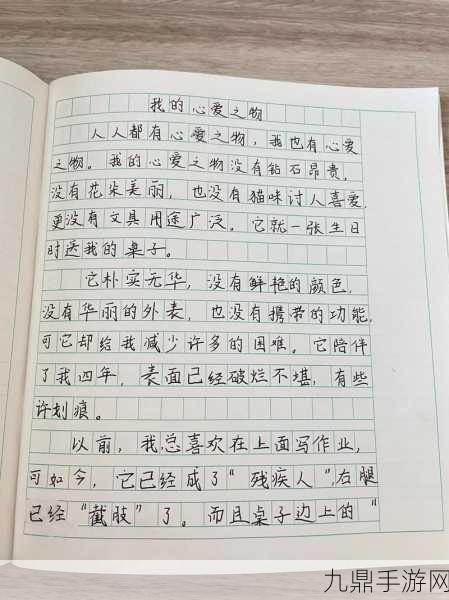 我的心爱之物
人人都有心爱之物，我也有心爱
之物。我的心爱之物没有钻石昂贵，
没有花朵美丽，也没有猫咪讨人喜爱，
更没有文具用途广泛。它就一张生日
时送我的桌子。
它朴实无华，没有鲜艳的颜色，
没有华丽的外表，也没有携带的功能，
可它却给我减少许多的困难。它陪伴
了我四年，表面已经破烂不堪，有些
许划痕。
以前，我总喜欢在上面写作业，
可如今，它已经成了“残疾人”，右腿
已经“截肢”了。而且桌子边上的“
九鼎手游网